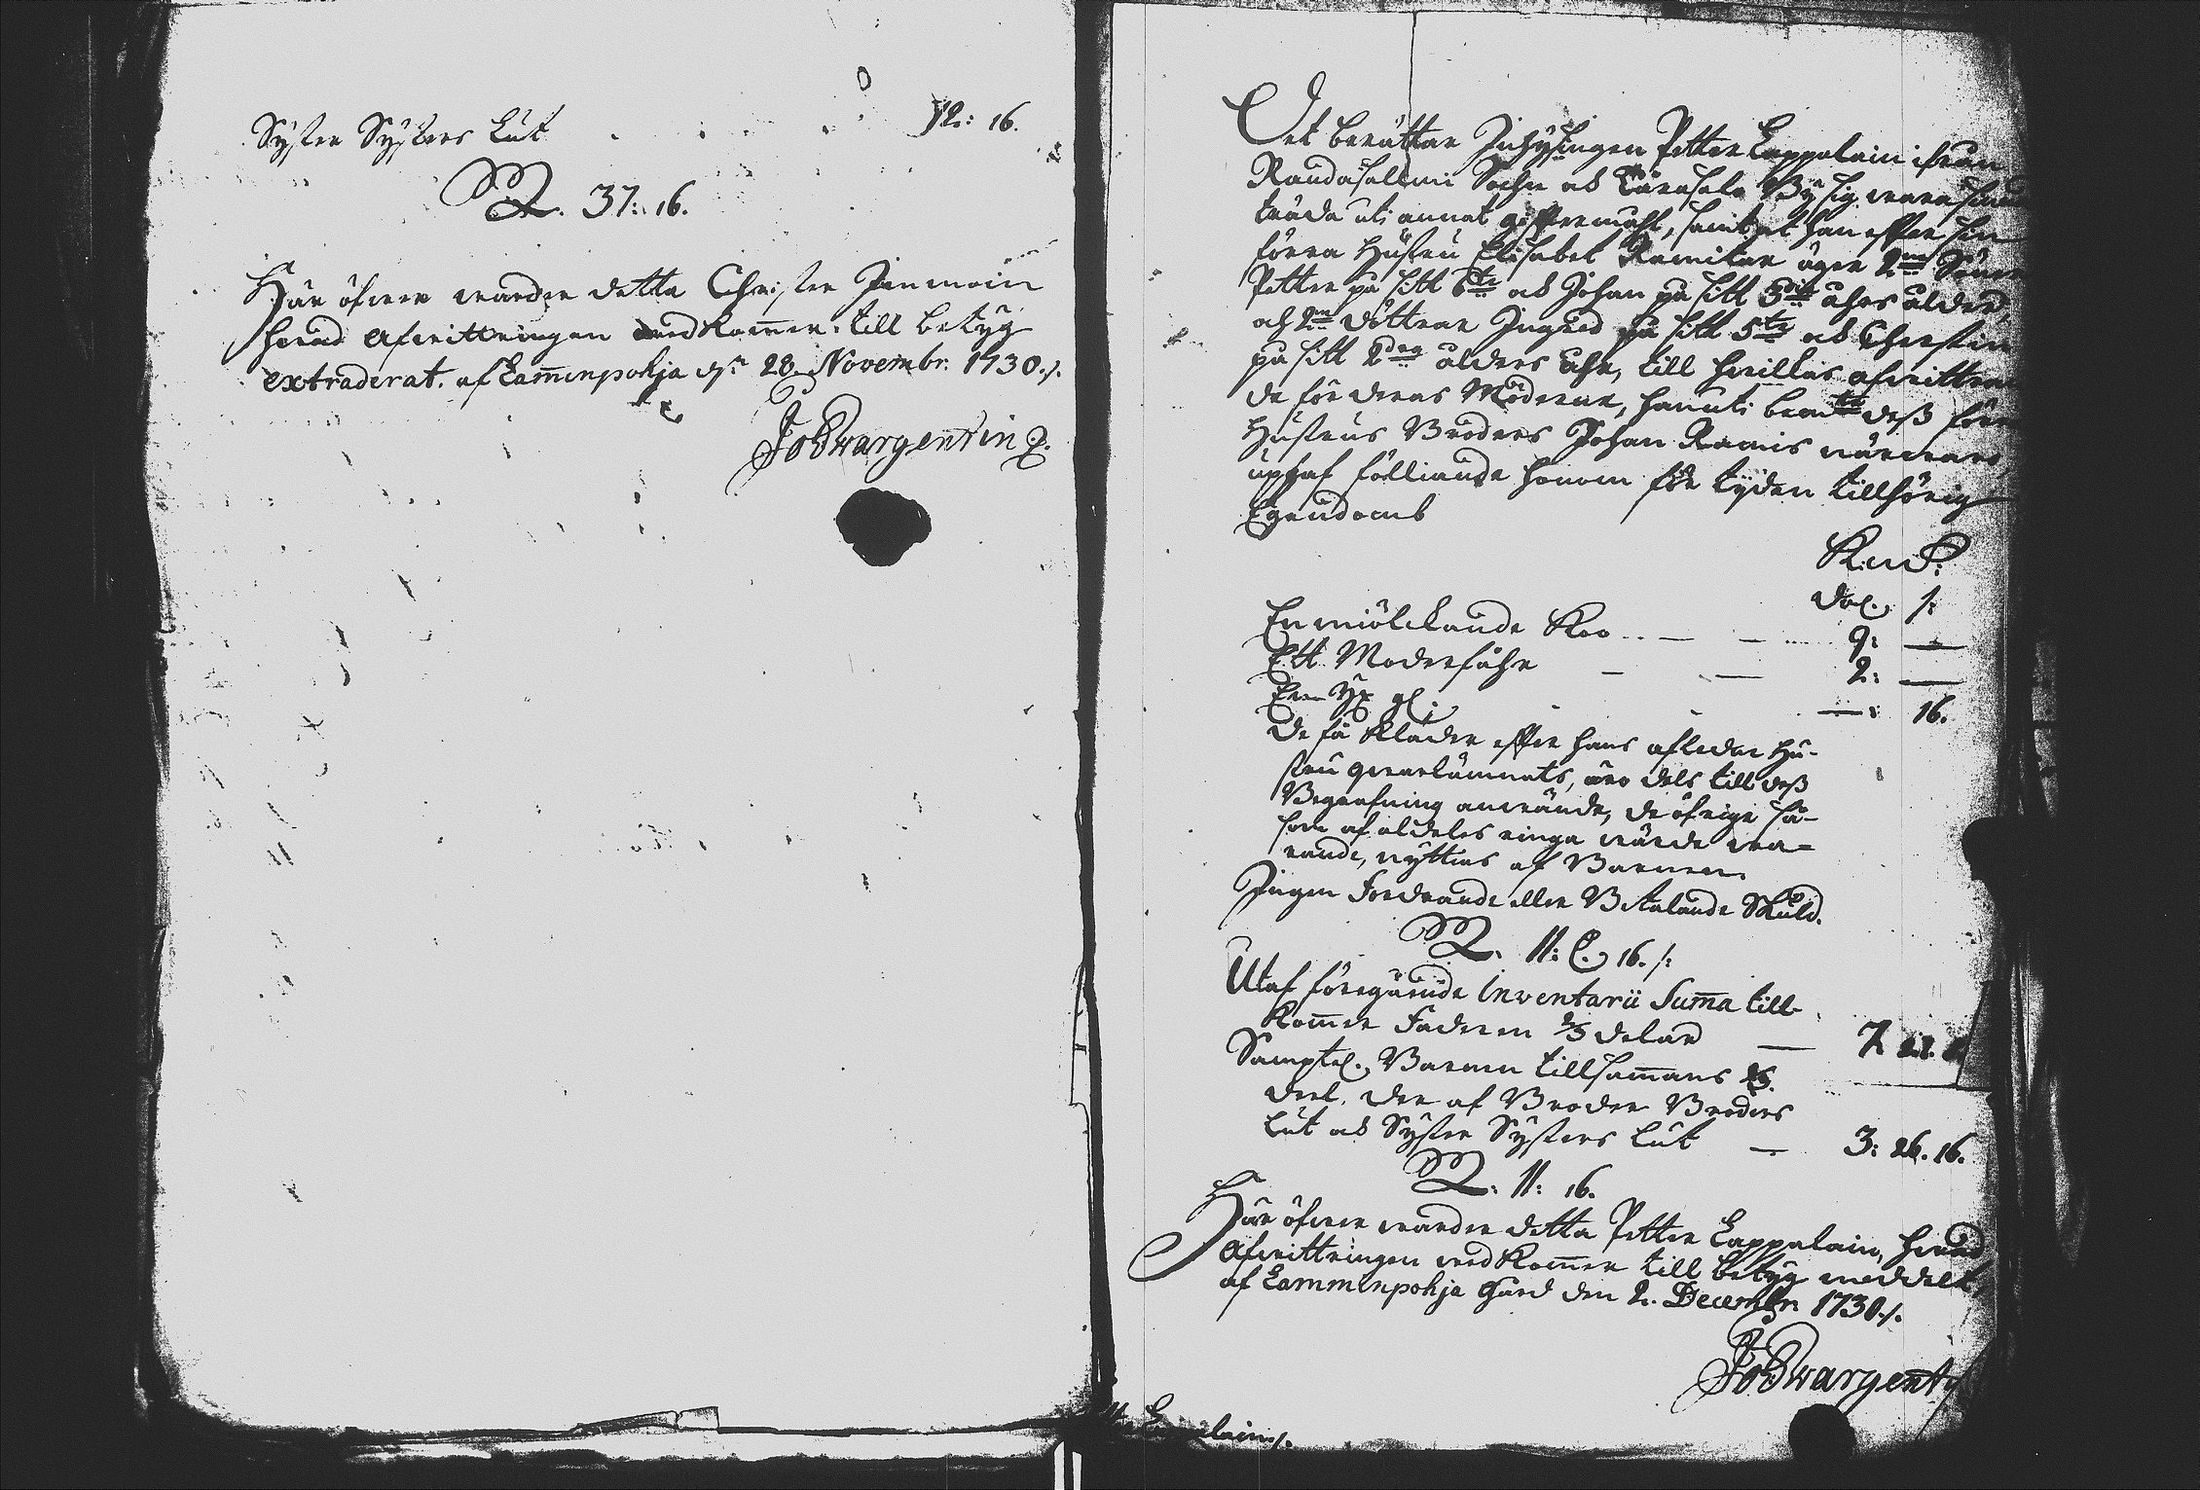 Syster Systers Lut 12: 16.
S. 37: 16.
Här öfwer warder detta Christer Immoin
hwad afwittringen wedkommer till betyg
extraderat. af Lammenpohja d. 28 Novembr. 1730./.
Jo Wargentin
Det berättar Inhysingen Petter Lappalain ifrån
Randasallmi Sochn och By sig wara sinnad
träda uti annat gifftermåhl, samt at han effter sin
förra Hustru Elisabet äger 2ne Söner
Petter på sitt 6te och Johan på sitt 3die åhrs ålder,
och 2ne döttrar Ingred på sitt 5te och Cherstin
på sitt 2dra ålders åhr, till hwilkas afwittran
de för deras Möderne, han uti dess förra
Hustrus Broders Johan närwaro
upgaf fölliande honom för tyden tillhörig
Egendomb
K:m:t:
Dal. /:
En miölckande Koo 9: —
Ett Moderfåhr 2: —
Een Yx gl. —: 16.
De få Kläder effter hans afledne Hu-
stru qwarlämnats, äro dels till dess
Begrafning anwände, de öfrige så-
som af aldeles ringa wärde wa=
rande, nyttias af Barnen
Ingen Fordrande eller Betalande Skuld.
S. 11: 16. /:
Utaf föregående Inventarii Summa till
kommer Faderen 2/3 delar — 7
Samptel. Barnen tillsammans 1/3.
deel, der af Broder Broders
Lut och Syster Systers Lut — 3: 26. 16.
S. 11: 16.
Här öfwer warder detta Petter Lappalain, hwad
afwittringen wedkommer till betyg meddelt,
af Lammenpohja Gård den 2. Decembr. 1730./.
Jo Wargenti